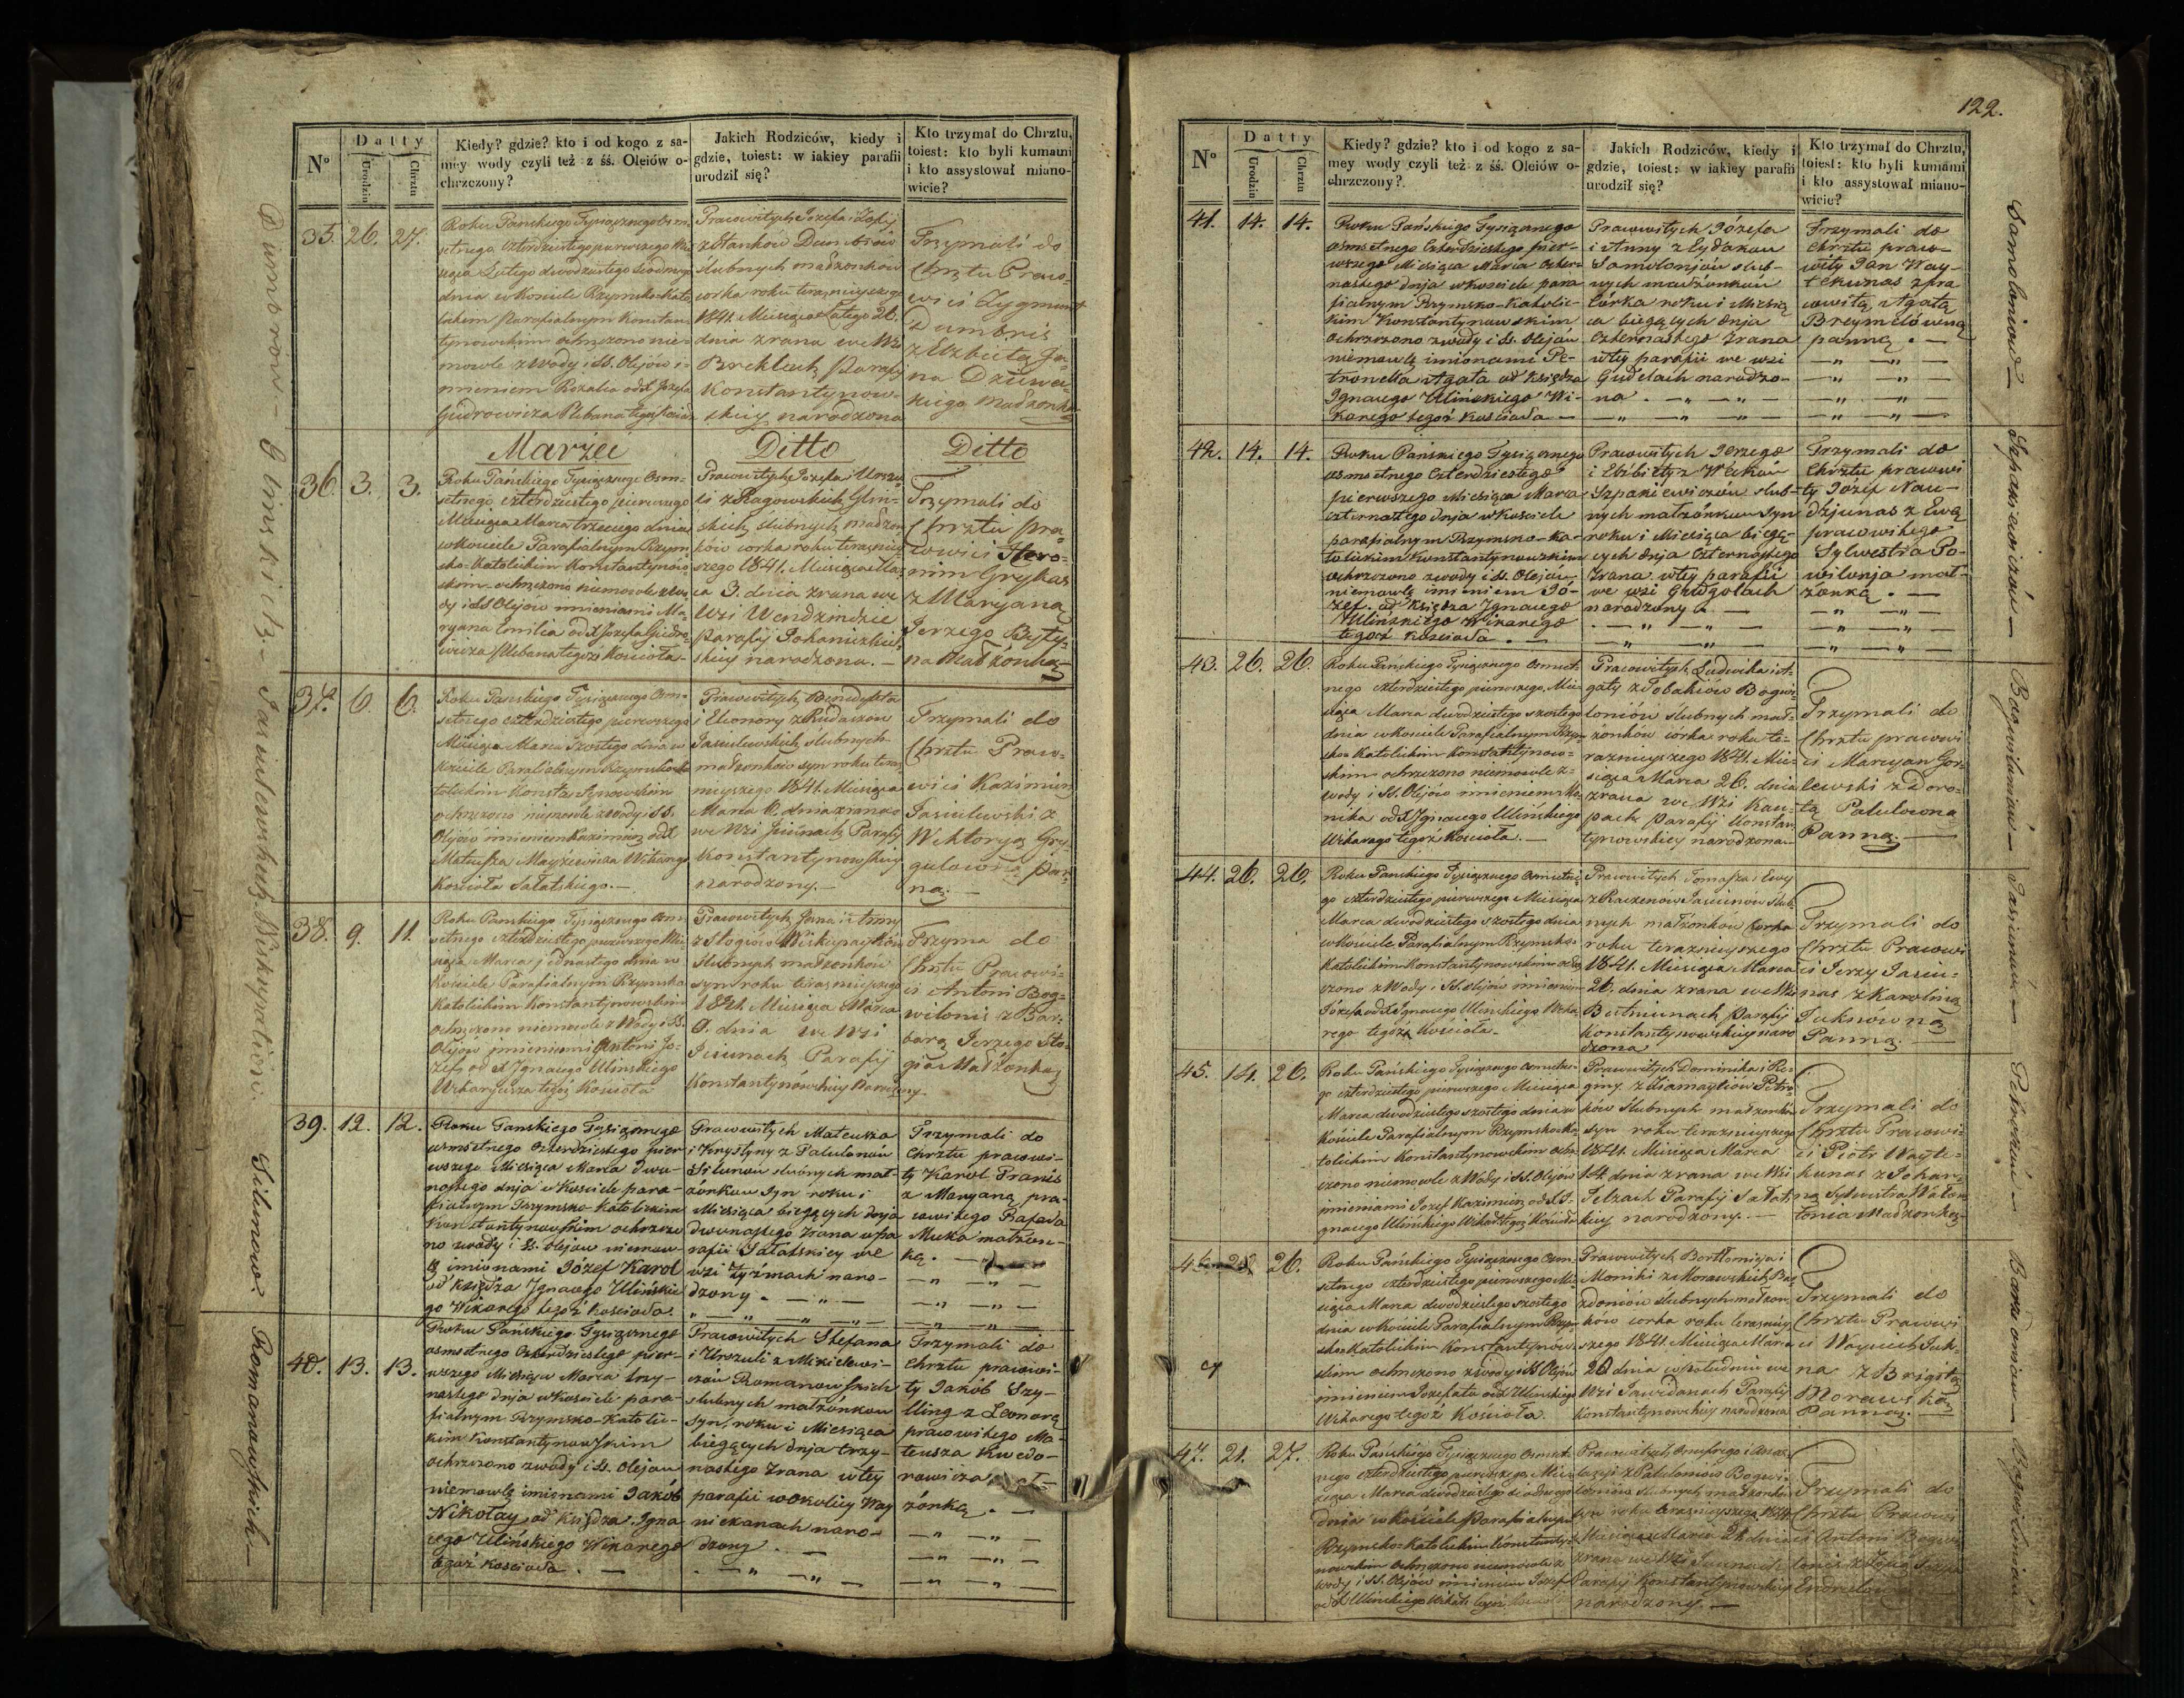 N°
Datty
Urodzin
Chrztu
Kiedy? gdzie? kto i od kogo z sa-
mey wody czyli też z śś. Oleiów o-
chrzczony?
Jakich Rodziców, kiedy i
gdzie, toiest: w iakiey parafii
urodził się?
Kto trzymał do Chrztu,
toiest: kto byli kumami
i kto assystował miano-
wicie?
35. 26. 27.
Roku Pańskiego Tysiącznego Osm-
setnego czterdziestego pierwszego Mie-
siąca Lutego dwudziestego siódmego
dnia w Kościele Rzymsko-Kato-
lickim Parafialnym Konstan-
tynowskim ochrzczono nie-
mowle z Wody i SS. Olejów i-
mieniem Rozalia od X Jozefa
Giedrowicza Plebana tegoż Kościoła
Pracowitych Jozefa i Zofij
ślubnych małżonków
corka roku teraznieyszego
1841. Miesiąca Lutego 26.
dnia zrana we Wsi
Parafij
Konstantynow-
skiey narodzona
Trzymali do
Chrztu Praco-
wici Zygmunt
Dumbris
z Elzbietą Ja-
na
małżonką
Marzec
Ditto
Ditto
36. 3. 3.
Roku Pańskiego Tysiącznego Osm-
setnego czterdziestego pierwszego
Miesiąca Marca trzeciego dnia
w Kościele Parafialnym Rzym-
sko-Katolickim Konstantynow-
skim ochrzczono niemowle z Wo-
dy i SS Olejów imieniami Ma-
ryana Emilia od X Jozefa Giedro-
wicza Plebana tegoż Kościoła
Prawowitych Jozefa i Urszu-
li z Ragowskich Glin-
skich, ślubnych małżon-
ków corka roku terazniey-
szego 1841. Miesiąca Mar-
ca 3. dnia zrana we
Wsi Wendzindzie
parafij
skiey narodzona.
Trzymali do
Chrztu pra-
cowici Hiero-
nim Grybas
z Maryaną
Jerzego
na Małżonką
37. 6. 6.
Roku Pańskiego Tysiącznego Osm-
setnego czterdziestego pierwszego
Miesiąca Marca Szostego dnia w
Kościele Parafialnym Rzymsko-Ka-
tolickim Konstantynowskim
ochrzczono niemowle z wody i SS.
Olejów imieniem Kazimierz od X
Mateusza Wikarego
Kościoła Sałatskiego.
Prawowitych Benedykta
i Eleonory z
Jasiulewskich ślubnych
małżonków syn roku teraz-
nieyszego 1841. Miesiąca
Marca 6. dnia zrana
we Wsi Jiciunach Parafij
Konstantynowskiey
narodzony.
Trzymali do
Chrztu Praco-
wici Kazimierz
Jasiulewski z
Wiktoryą Gry-
gulowną Pan-
ną.
38. 9. 11.
Roku Pańskiego Tysiącznego Osm-
setnego czterdziestego pierwszego Mie-
siąca Marca jednastego dnia w
Kościele Parafialnym Rzymsko
Katolickim Konstantynowskim
ochrzczono niemowle z Wody i SS.
Olejów imieniami Antoni Jo-
zef od X Ignacego Ulinskiego
Wikaryusza tegoż Kościoła
Prawowitych Jana i Anny
z Stogiów
ślubnych małżonków
syn roku teraznieyszego
1841. Miesiąca Marca
9. dnia we Wsi
Jiciunach Parafij
Konstantynowskiey narodzony.
Trzyma do
Chrztu Pracowi-
ci Antoni Bog-
wilonis z Bar-
barą Jerzego Sto-
gia Małżonką
39. 12. 12.
Roku Pańskiego Tysiącznego
osmsetnego Czterdziestego pier-
wszego Miesiąca Marca dwu-
nastego dnja w Kościele para-
fialnym Rzymsko-Katolickim
Konstantynowskim ochrzczo-
no zwody i SS. olejow niemow-
lę imionami Józef Karol
od księdza Jgnacego Ulińskie-
go Wikarego tegoż kościoła.
Prawowitych Mateusza
i Krystyny z Palulonów
Silunow slubnych mał-
żonkow syn roku i
Miesiąca bieġących dnja
dwunastego zrana w pa-
rafii Sałatskiey we
wsi Zyżmach naro-
dzony.
Trzymali do
Chrztu pracowi-
ty Karol Pranis
z Maryaną pra-
cowitego Rafała
Muka małżon-
ką.
40. 13. 13.
Roku Pańskiego Tysiącznego
osmsetnego Czterdziestego pier-
wszego Miesiąca Marca trzy-
nastego dnja w Kościele para-
fialnym Rzymsko-Katolic-
kim Konstantynowskim
ochrzczono zwody i SS. Olejow
niemowlę imionami Jakób
Nikołay od Księdza Igna-
cego Ulińskiego Wikarego
tegoż kościoła.
Prawowitych Stefana
i Urszuli z Mikielewi-
czow Romanowskich
slubnych małżonkow
syn, roku i Miesiąca
biegących dnja trzy-
nastego zrana w tey
parafii w okolicy Way-
niekanach naro-
dzony.
Trzymali do
Chrztu pracowi-
ty Jakób Szy-
lling z Leonorą
pracowitego Ma-
teusza Kwedo-
rowicza mał-
żonką.
Dumbrów
Glinskich
Jasiulewskich
Silunow.
Romanowskich
122.
N°
Datty
Urodzin
Chrztu
Kiedy? gdzie? kto i od kogo z sa-
mey wody czyli też z śś. Oleiów o-
chrzczony?
Jakich Rodziców, kiedy i
gdzie, toiest: w iakiey parafii
urodził się?
Kto trzymał do Chrztu,
toiest: kto byli kumami
i kto assystował miano-
wicie?
41. 14. 14.
Roku Pańskiego Tysiącznego
osmsetnego Czterdziestego pier-
wszego Miesiąca Marca Czter-
nastego dnja w kościele para-
fialnym Rzymsko-Katolic-
kim Konstantynowskim
ochrzczono zwody i SS. Olejów
niemowlę imionami Pe-
tronella Agata od księdza
Ignacego Ulińskiego Wi-
karego tegoż kościoła
Prawowitych Józefa
i Anny z Eydukow
Samolonjów slub-
nych małżonkow
córka roku i Miesią-
ca bieġących dnja
Czternastego zrana
w tey parafii we wsi
Gudelach narodzo-
na.
Trzymali do
Chrztu praco-
wity Jan Way-
tekunas z pra-
cowitą Agatą
Breymelówną
panną.
42. 14. 14.
Roku Pańskiego Tysiącznego
osmsetnego Czterdziestego
pierwszego Miesiąca Marca
czternastego dnja w kościele
parafialnym Rzymsko-Ka-
tolickim Konstantynowskim
ochrzczono zwody i SS. Olejów
niemowlę imieniem Jó-
zef. od księdza Jgnacego
Ulińskiego Wikarego
tegoż kościoła.
Prawowitych Jerzego
i Elżbiety z Wećków
Szpakiewiczów slub-
nych małżonkow syn
roku i Miesiąca bieġą-
cych dnja Czternastego
zrana w tey parafii
we wsi Gudgołach
narodzony.
Trzymali do
Chrztu pracowi
ty Józef Nau-
djunas z Ewą
pracowitego
Sylwestra Po-
wilonja mał-
żonką.
43. 26. 26.
Roku Pańskiego Tysiącznego Osmset-
nego czterdziestego pierwszego Mie-
siąca Marca dwudziestego szostego
dnia w Kościele Parafialnym Rzym-
sko-Katolickim Konstantynow-
skim ochrzczono niemowle z
wody i SS. Olejów imieniem Mo-
nika od X Ignacego Ulinskiego
Wikarego tegoż Kościoła.
Pracowitych Ludwika i A-
gaty z Bogwi-
loniów ślubnych mał-
żonków corka roku te-
raznieyszego 1841. Mie-
siąca Marca 26. dnia
zrana we Wsi Kau-
pach Parafij Konstan-
tynowskiey narodzona
Trzymali do
Chrztu pracowi
ci Marcyan Gor-
lewski z Doro-
tą Paluloną
Panną.
44. 26. 26.
Roku Pańskiego Tysiącznego Osmsetne-
go czterdziestego pierwszego Miesiąca
Marca dwudziestego szostego dnia
w Kościele Parafialnym Rzymsko-
Katolickim Konstantynowskim ochrz-
czono z Wody i SS. Olejów imieniem
Józefa od X Ignacego Ulinskiego Wika-
rego tegoż Kościoła.
Prawowitych Tomasza i Ewy
z Raczenów Jasiunów ślub-
nych małżonków corka
roku teraznieyszego
1841. Miesiąca Marca
26. dnia zrana we Wsi
Butniunach Parafij
Konstantynowskiey naro
dzona
Trzymali do
Chrztu Pracowi
ci Jerzy Jasiu-
nas z Karoliną
Tuknówną
Panną.
45. 14. 26.
Roku Pańskiego Tysiącznego Osmsetne-
go czterdziestego pierwszego Miesiąca
Marca dwudziestego szostego dnia w
Kościele Parafialnym Rzymsko-Ka-
tolickim Konstantynowskim ochrz-
czono niemowle z Wody i SS. Olejów
imieniami Jozef Kazimierz od X I-
gnacego Ulinskiego Wikarego tegoż Kościoła
Prawowitych Dominika i Re-
giny z Ziamaytiów Petro-
ków ślubnych małżonków
syn roku teraznieyszego
1841. Miesiąca Marca
14 dnia zrana we Wsi
Pelzach Parafij Sałat-
skiey narodzony.
Trzymali do
Chrztu Pracowi-
ci Piotr Wayte-
kunas z Johan-
ną Sylwestra
Małżonką
46. 20. 26.
Roku Pańskiego Tysiącznego Osm-
setnego czterdziestego pierwszego Mie-
siąca Marca dwudziestego szostego
dnia w Kościele Parafialnym Rzym-
sko-Katolickim Konstantynow-
skim ochrzczono z wody i SS Olejów
imieniem Jozefata od X Ulinskiego
Wikarego tegoż Kościoła.
Prawowitych Bortłomieja i
Moniki z Morawskich
ślubnych małżon-
ków corka roku teraźniey-
szego 1841. Miesiąca Marca
20 dnia w południe we
Wsi Jawidanach Parafij
Konstantynowskiey narodzona
Trzymali do
Chrztu Pracowi
ci Woyciech Juk-
na z Brigitą
Morawską
Panną.
47. 21. 27.
Roku Pańskiego Tysiącznego Osmset-
nego czterdziestego pierwszego Mie-
siąca Marca dwudziestego siodmego
dnia w Kościele Parafialnym
Rzymsko-Katolickim Konstanty-
nowskim ochrzczono niemowle z
wody i SS. Olejów imieniem Jozef
od X Ulinskiego Wikarego tegoż Kościoła
Prawowitych Onufrego i
z Paluloniów Bogwi-
loniów ślubnych małżonków
syn roku teraznieyszego 1841
Miesiąca Marca 21 dnia
zrana we Wsi
Parafij Konstantynowskiey
narodzony.
Trzymali do
Chrztu Pracowi
ci Antoni Bogwi-
lonis z
Samoloniow
Szpakiewiczów
Bogwiloniów
Jasiunów
Petroków
Bogwiloniów